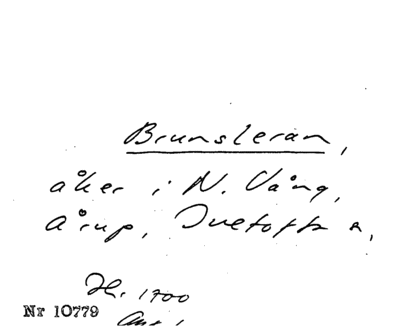 Brunsleran,
åker i N. Vång,
Årup, Ivetofta s,
Hs. 1700
Nr 10779